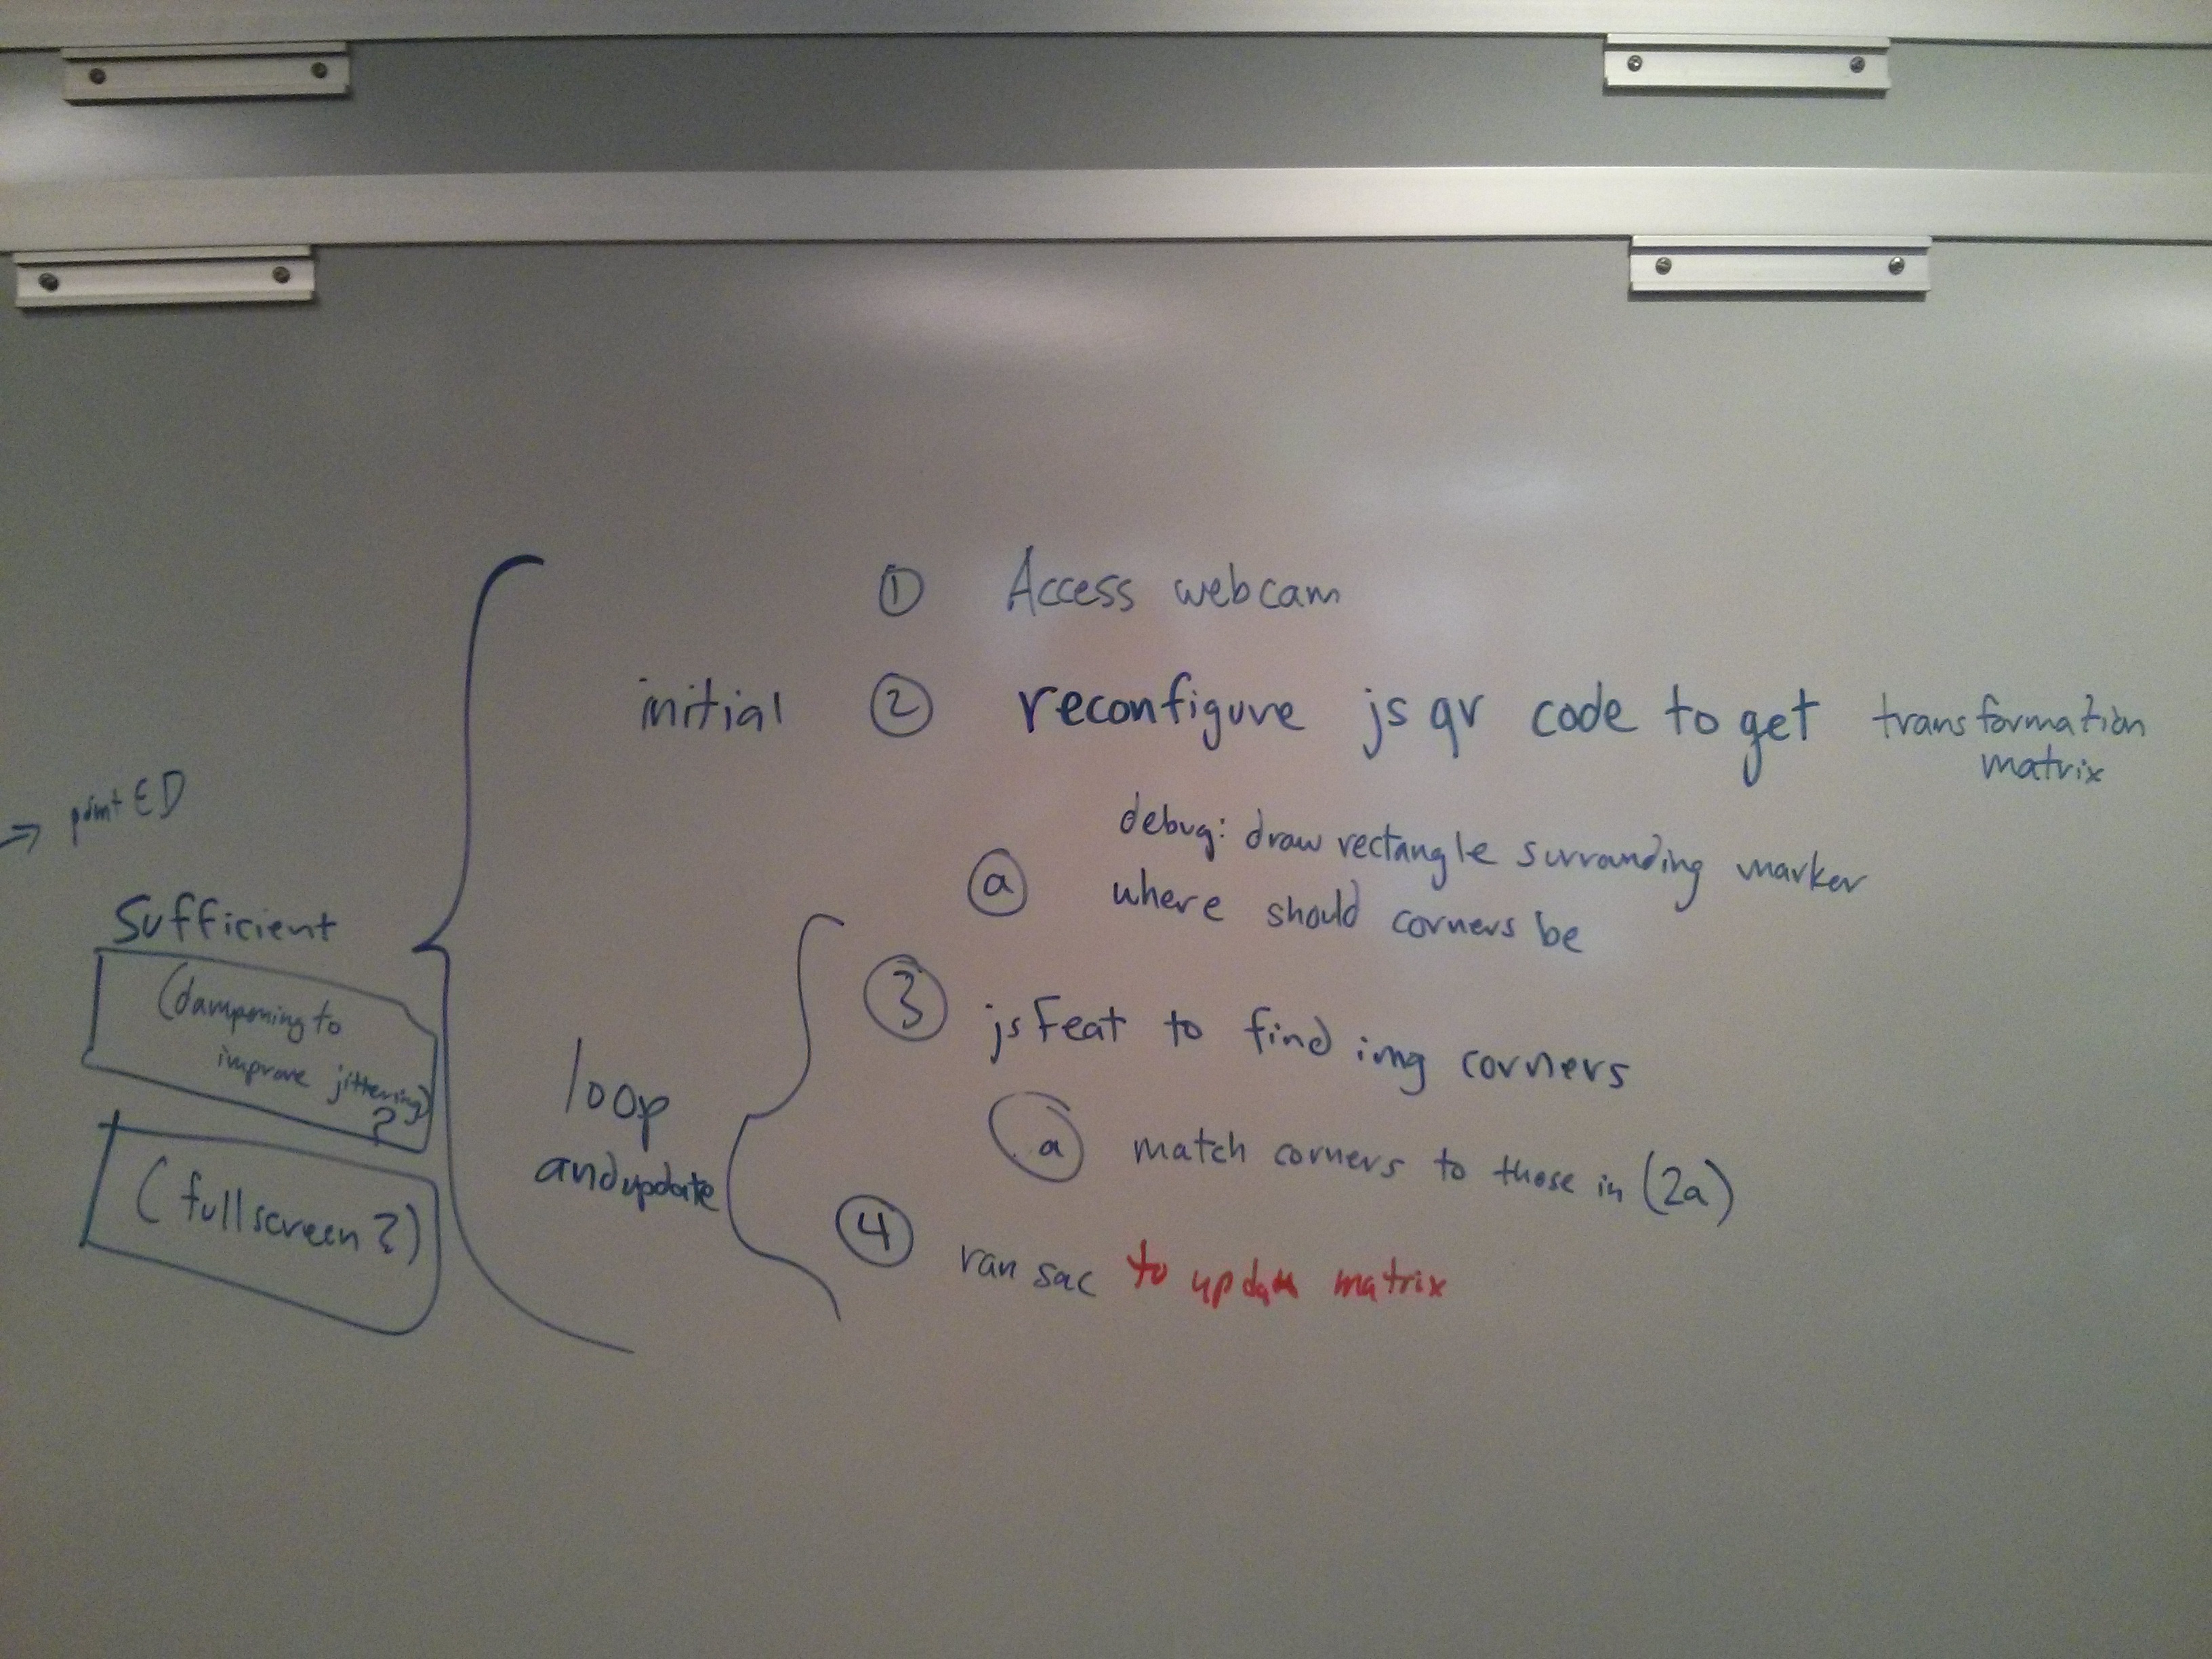 ① Access webcam
initial ② reconfigure jsqr code to get transformation
matrix
debug: draw rectangle surrounding marker
ⓐ where should corners be
③ jsFeat to find img corners
ⓐ match corners to those in (2a)
④ ransac to update matrix
loop
and update
⇒ ED
Sufficient
(dampening to
improve jittering)
?
(fullscreen?)